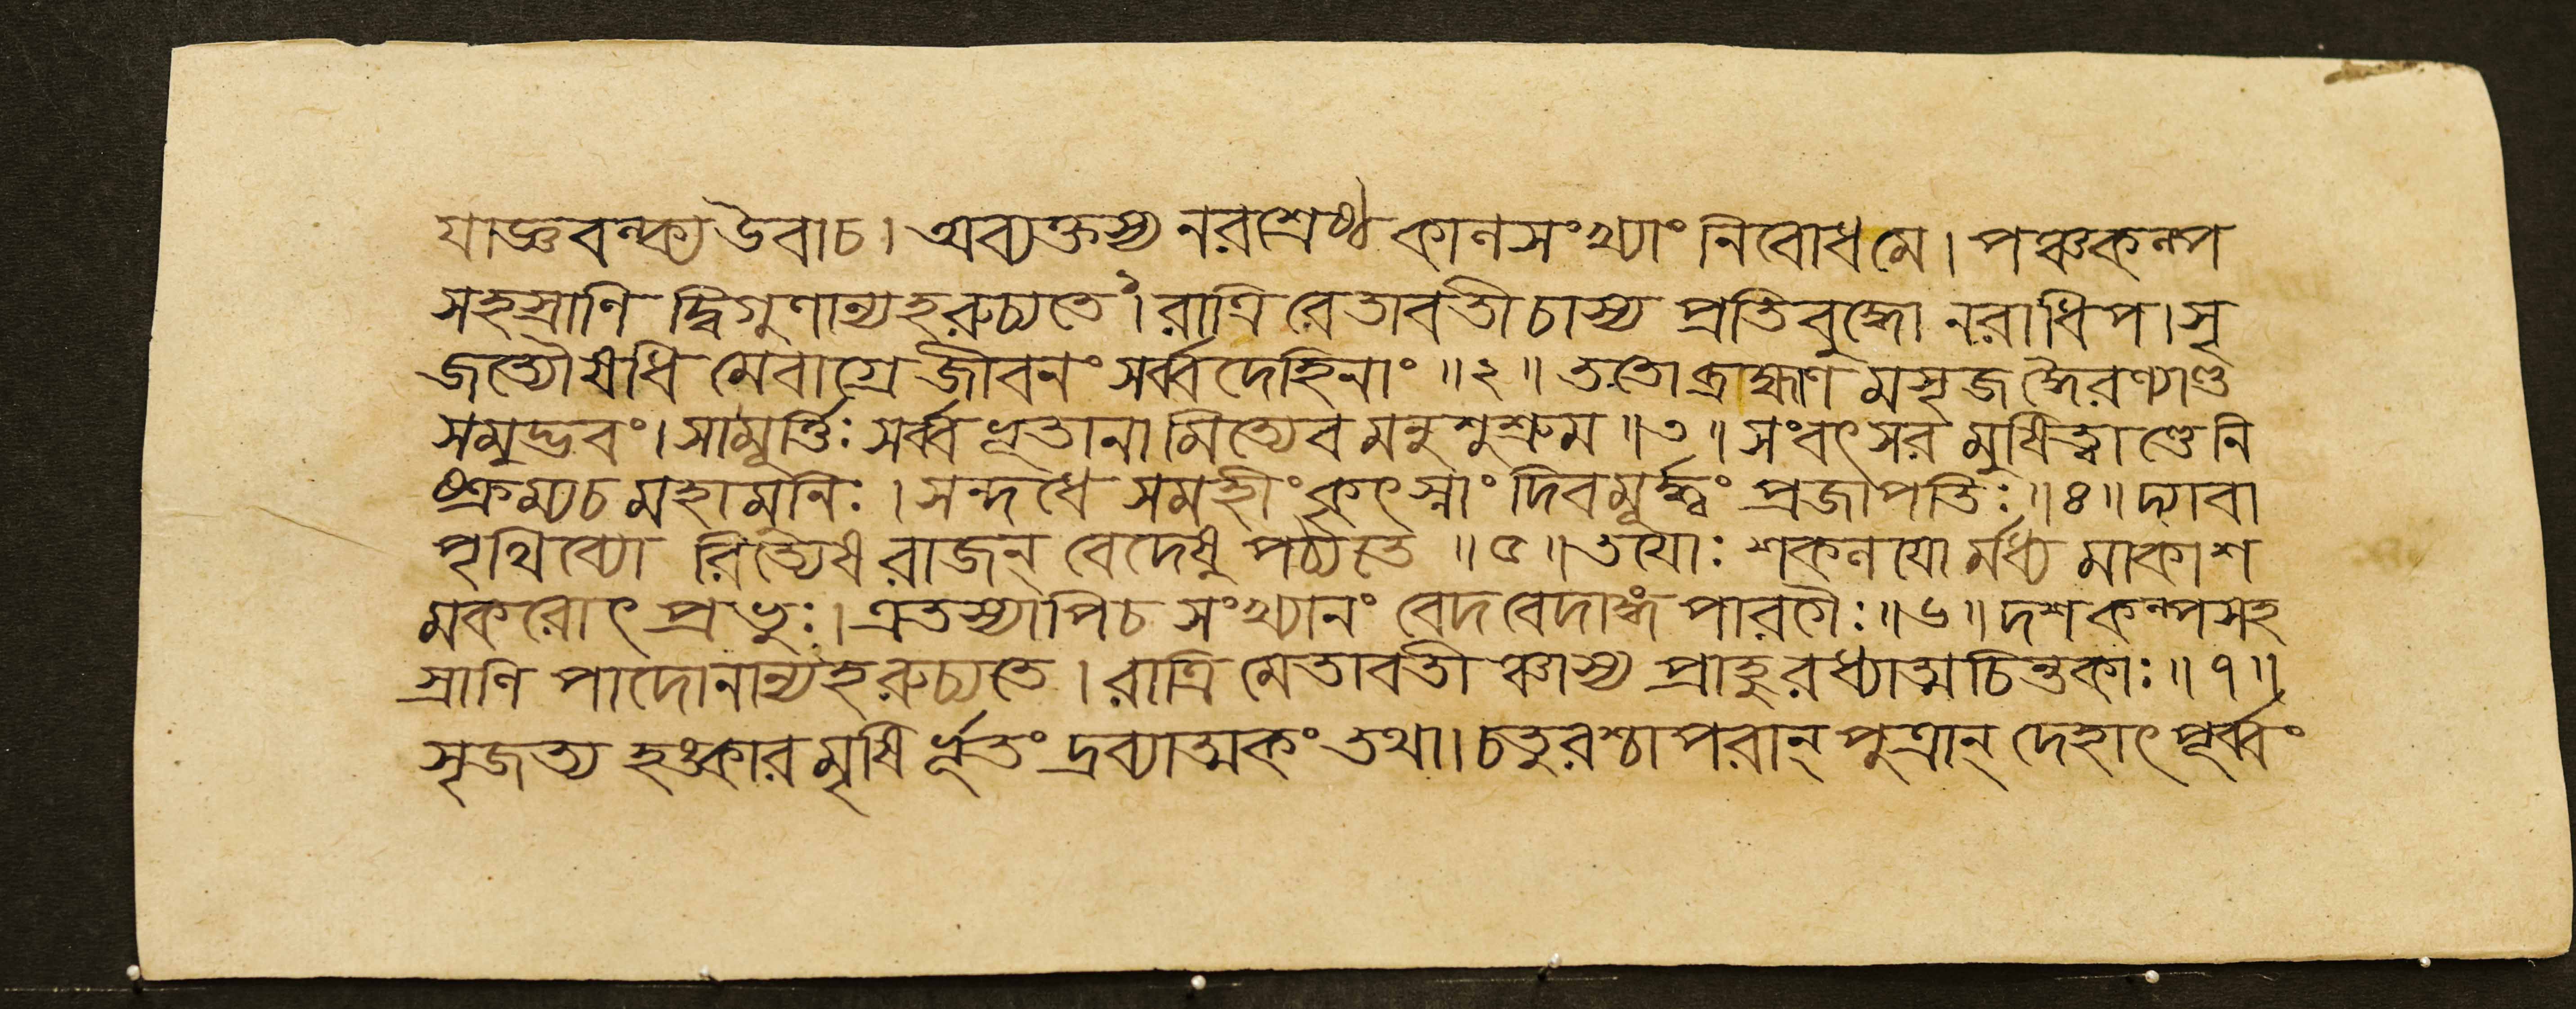 যাজ্ঞবল্ক্য উবাচ। অব্যক্তস্য নরশ্রেষ্ঠ কালসংখ্যাং নিবোধ মে। পঞ্চকল্প
সহস্রাণি দ্বিগুণান্যহরুচ্যতে১। রাত্রি রেতাবতী চাস্য প্রতিবুদ্ধো নরাধিপ। সৃ
জত্যৌষধি মেবাগ্রে জীবনং সর্ব্বদেহিনাং ॥২॥ ততো ব্রাহ্মণ মসৃজ দ্ধৈরণ্যাণ্ড
সমুদ্ভবং। সা মূর্ত্তিঃ সর্ব্ব ভূতানা মিত্যেব মনুশুশ্রুম ॥৩॥ সংবৎসর মুষিত্বাণ্ডে নি
ষ্ক্রম্য চ মহামুনিঃ। সন্দধে স মহীং কৃৎস্নাং দিবমূর্দ্ধ্বং প্রজাপতিঃ ॥৪॥ দ্যাবা
পৃথিব্যো রিত্যেষ রাজন্ বেদেষু পঠ্যতে ॥৫॥ তয়োঃ শকলয়ো র্মধ্য মাকাশ
মকরোৎ প্রভুঃ। এতস্যাপি চ সংখ্যানং বেদবেদাঙ্গ পারগৈঃ ॥৬॥ দশকল্পসহ
স্রাণি পাদোনান্যহরুচ্যতে। রাত্রি মেতাবতী ঞ্চাস্য প্রাহুরধ্যাত্মচিন্তকাঃ ॥৭॥
সৃজত্য হঙ্কার মৃষি র্ভূতং দ্রব্যাত্মকং তথা। চতুরশ্চাপরান্ পুত্রান্ দেহাৎ পূর্ব্বং